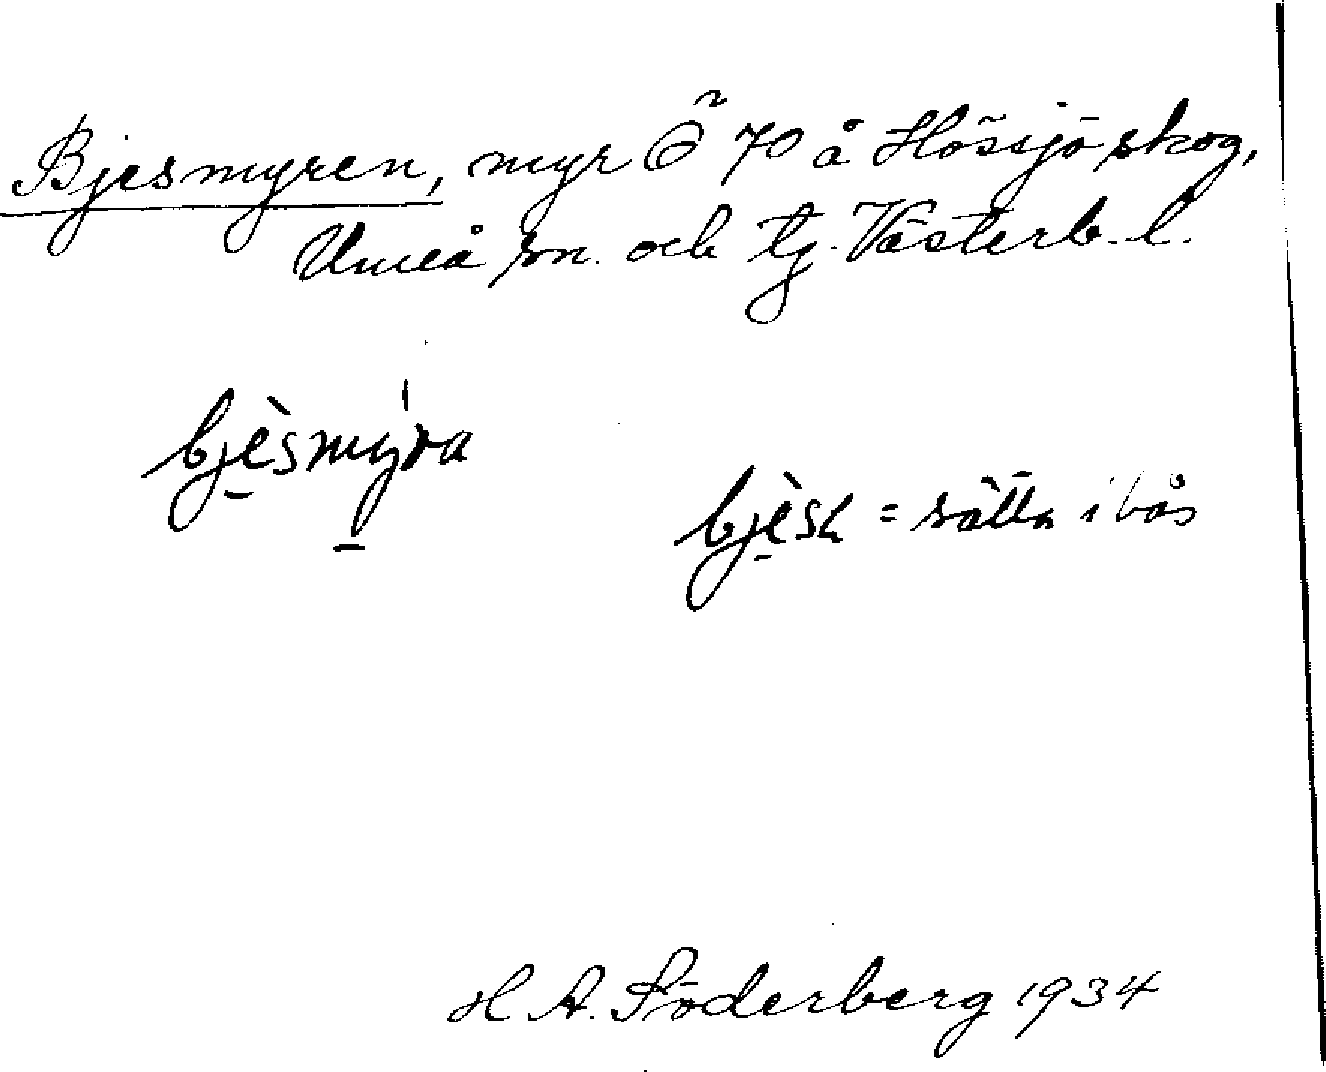 Bjesmyren, myr Ö 70 å Hössjö skog,
Umeå sn. och tg. Västerb. l.
bjèsmy̍ra
bjès = sätta i bås
H A. Söderberg 1934